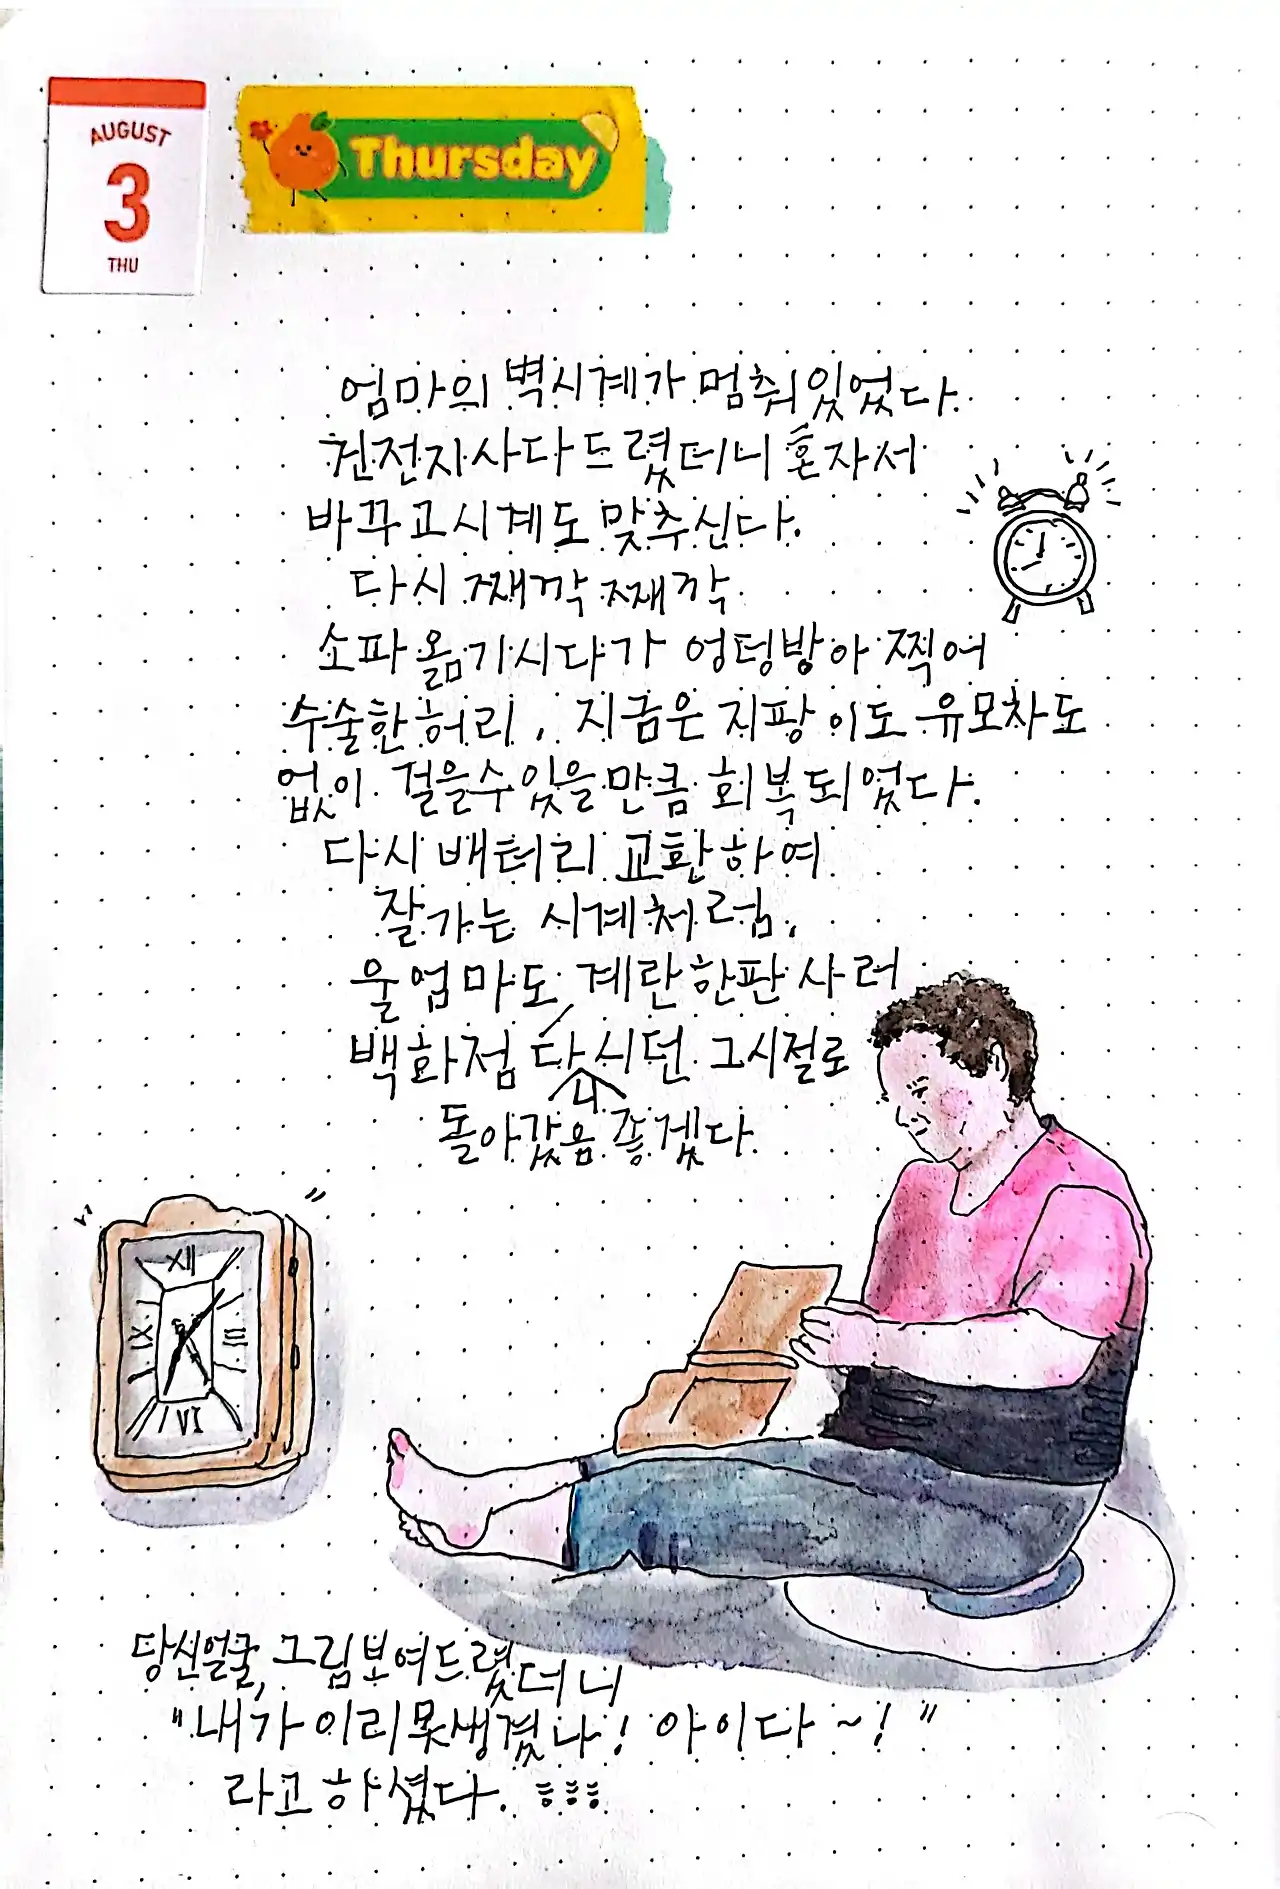 AUGUST
3
THU
Thursday
엄마의 벽시계가 멈춰있었다.
건전지사다드렸더니 혼자서
바꾸고시계도 맞추신다.
다시 째깍 째깍
소파 옮기시다가 엉덩방아 찧어
수술한허리, 지금은 지팡이도 유모차도
없이 걸을수있을만큼 회복되었다.
다시 배터리 교환하여
잘가는 시계처럼,
울엄마도 계란한판 사러
백화점 다니시던 그시절로
돌아갔음 좋겠다.
XII
IX
III
VI
당신얼굴, 그림보여드렸더니
"내가 이리못생겼나! 아이다~!"
라고하셨다. ㅎㅎㅎ